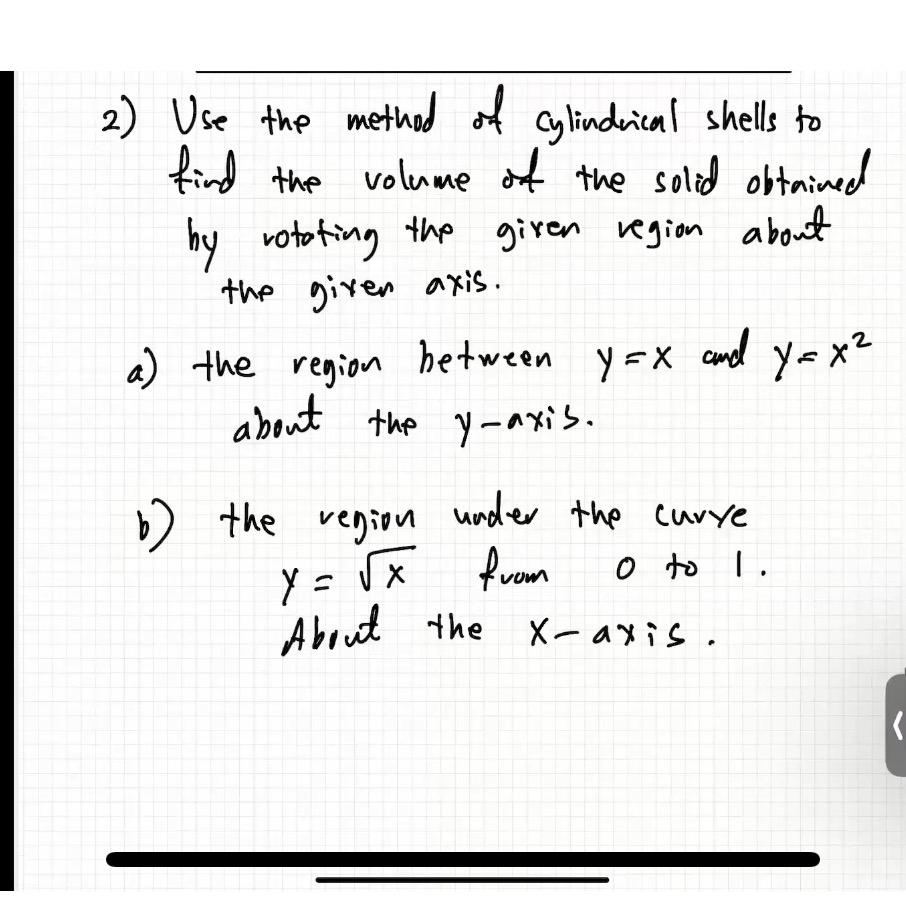 2) Use the method of cylindrical shells to
find the volume of the solid obtained
by rotating the given region about
the given axis.
a) the region between y = x and y = x²
about the y-axis.
b) the region under the curve
y = √x from 0 to 1.
About the x-axis.